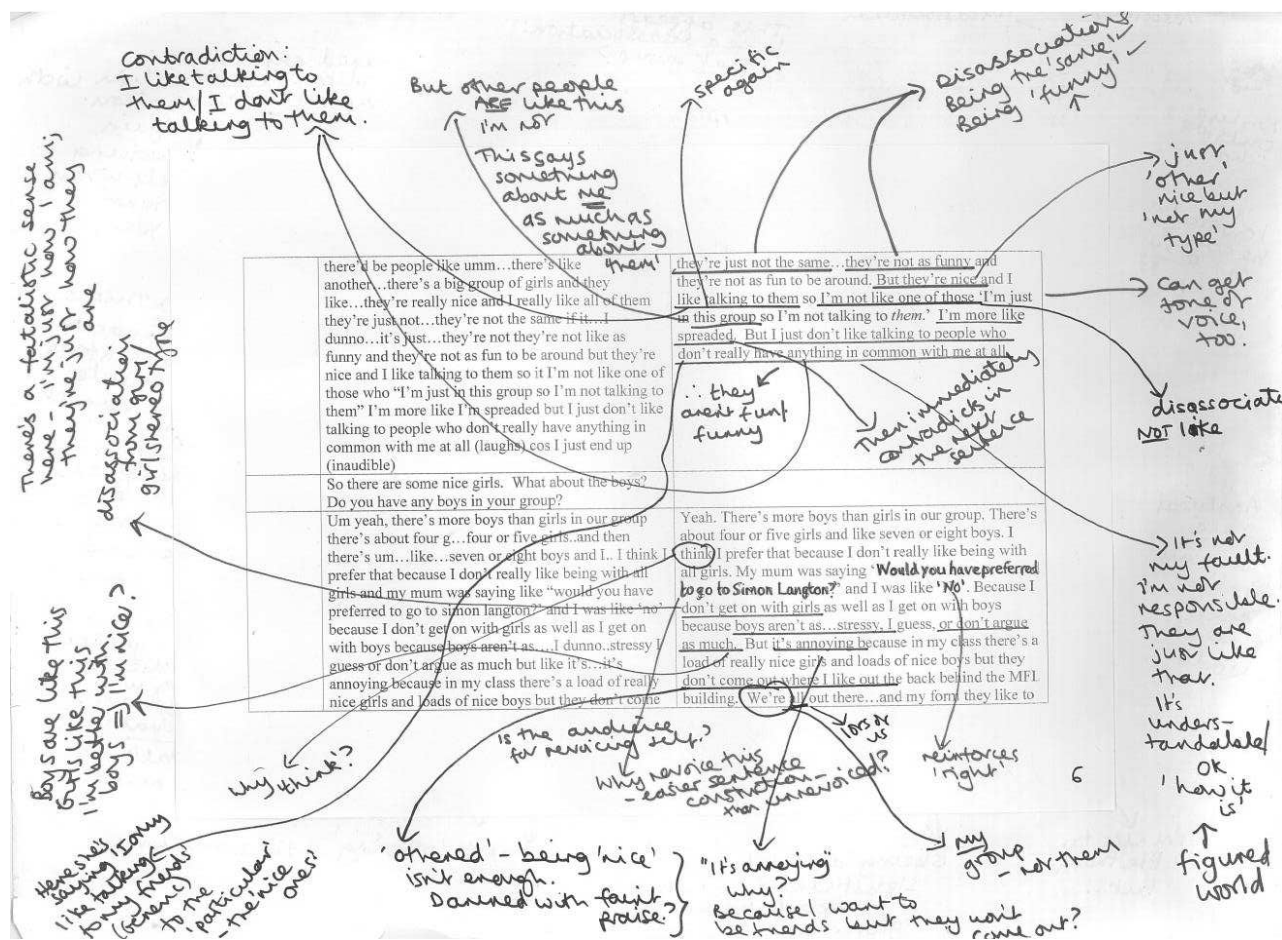 contradiction:
I like talking to
them/I don't like
talking to them.
But other people
ARE like this
I'm not
This says
something
about me
as much as
something
about
'them'
specific
again
Disassociations
Being the 'same' –
Being 'funny' –
just
'other'
nice but
'not my
type'
Can get
tone of
voice
too!
disassociate
NOT like
There's a fatalistic sense
here – 'I'm just how I am;
they're just how they
are
disassociation
from girls/
girlishness
there'd be people like umm…there's like
another…there's a big group of girls and they
like…they're really nice and I really like all of them
they're just not…they're not the same if it…I
dunno…it's just…they're not they're not like as
funny and they're not as fun to be around but they're
nice and I like talking to them so it I'm not like one of
those who "I'm just in this group so I'm not talking to
them" I'm more like I'm spreaded but I just don't like
talking to people who don't really have anything in
common with me at all (laughs) cos I just end up
(inaudible)
they're just not the same…they're not as funny and
they're not as fun to be around. But they're nice and I
like talking to them so I'm not like one of those 'I'm just
in this group so I'm not talking to them.' I'm more like
spreaded. But I just don't like talking to people who
don't really have anything in common with me at all.
∴ they
aren't fun/
funny
Then immediately
contradicts in
the next
sentence
So there are some nice girls. What about the boys?
Do you have any boys in your group?
Um yeah, there's more boys than girls in our group
there's about four g…four or five girls..and then
there's um…like…seven or eight boys and I.. I think I
prefer that because I don't really like being with all
girls and my mum was saying like "would you have
preferred to go to simon langton?" and I was like 'no'
because I don't get on with girls as well as I get on
with boys because boys aren't as….I dunno..stressy I
guess or don't argue as much but like it's…it's
annoying because in my class there's a load of really
nice girls and loads of nice boys but they don't come
Yeah. There's more boys than girls in our group. There's
about four or five girls and like seven or eight boys. I
think I prefer that because I don't really like being with
all girls. My mum was saying 'Would you have preferred
to go to Simon Langton?' and I was like 'No'. Because I
don't get on with girls as well as I get on with boys
because boys aren't as…stressy, I guess, or don't argue
as much. But it's annoying because in my class there's a
load of really nice girls and loads of nice boys but they
don't come out where I like out the back behind the MFL
building. We're all out there…and my form they like to
It's not
my fault.
I'm not
responsible.
They are
just like
that.
It's
unders-
tandable/
OK
'how it
is'
figured
world
Boys are like this
Girls like this
I'm better with
boys ⇒ I'm nice?
why 'think'?
Here she's
saying 'I only
like talking
to my friends'
(generic)
to the
'particular'
– the 'nice
ones'
Is the audience
for revoicing self?
Why revoice this
– easier sentence
construction –
than unrevoiced?
reinforces
'right'
6
'othered' – being 'nice'
isn't enough.
Damned with faint
praise?
"It's annoying"
why?
Because I want to
be friends but they won't
come out?
my
group
– not them